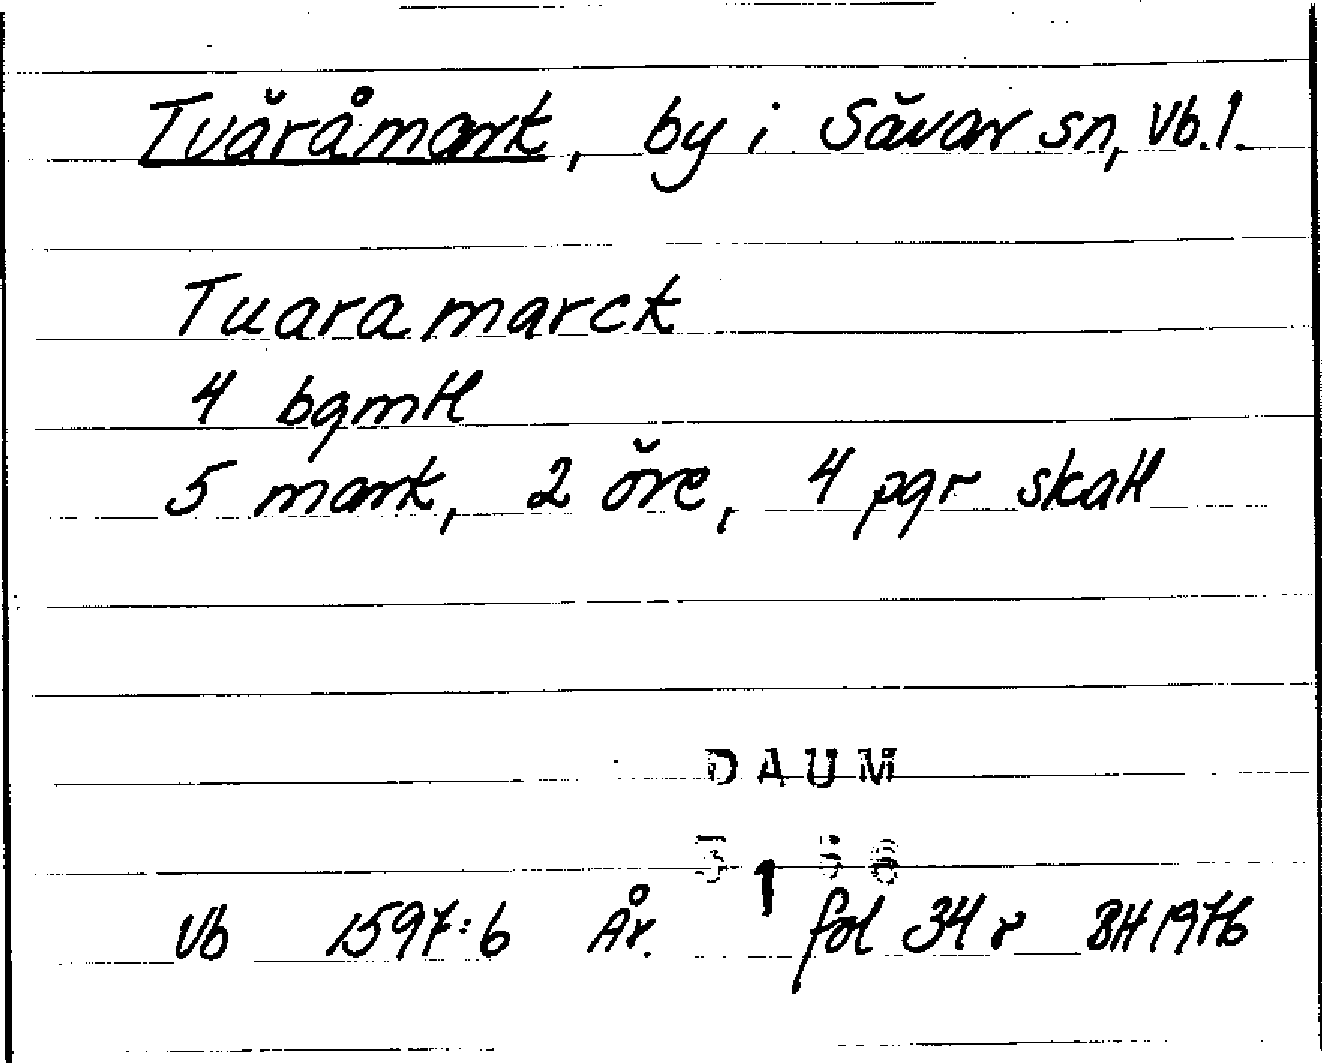 Tväråmark, by i Sävar sn, Vb. l.
Tuara marck
4 bgmtl
5 mark, 2 öre, 4 pgr skatt
DAUM
Vb 1597:6 År. fol 34 r BH 1976